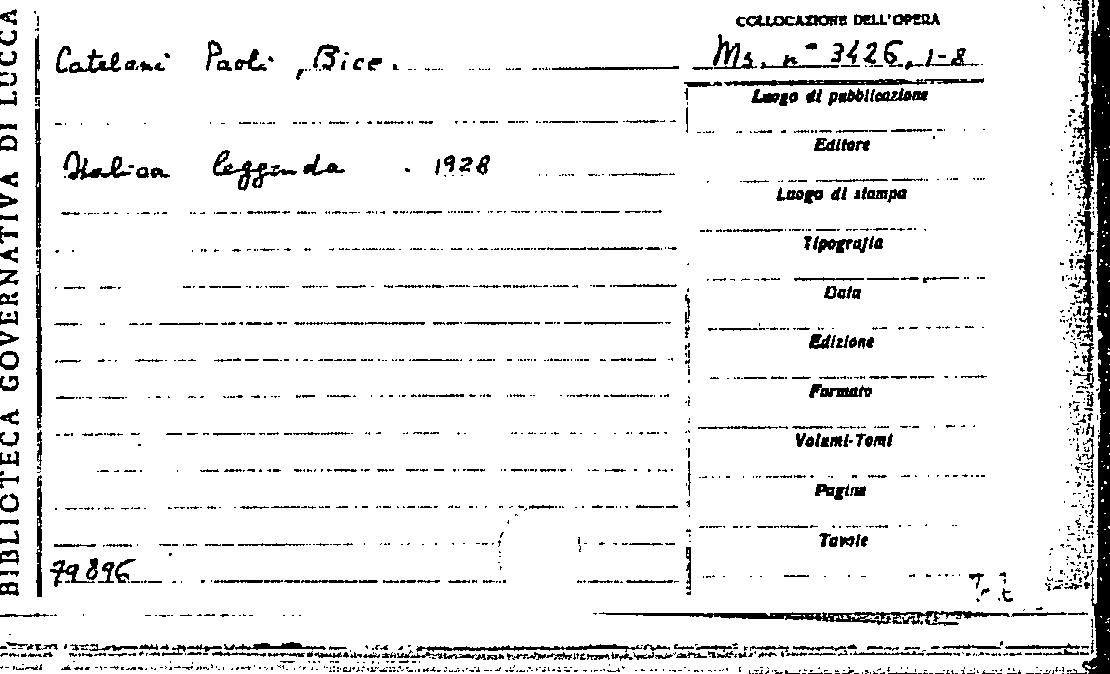 BIBLIOTECA GOVERNATIVA DI LUCCA
COLLOCAZIONE DELL'OPERA
Catelani Paoli, Bice.
Ms. n° 3426, 1-8
Luogo di pubblicazione
Editore
Italica leggenda . 1928
Luogo di stampa
Tipografia
Data
Edizione
Formato
Volumi-Tomi
Pagine
Tavole
79896